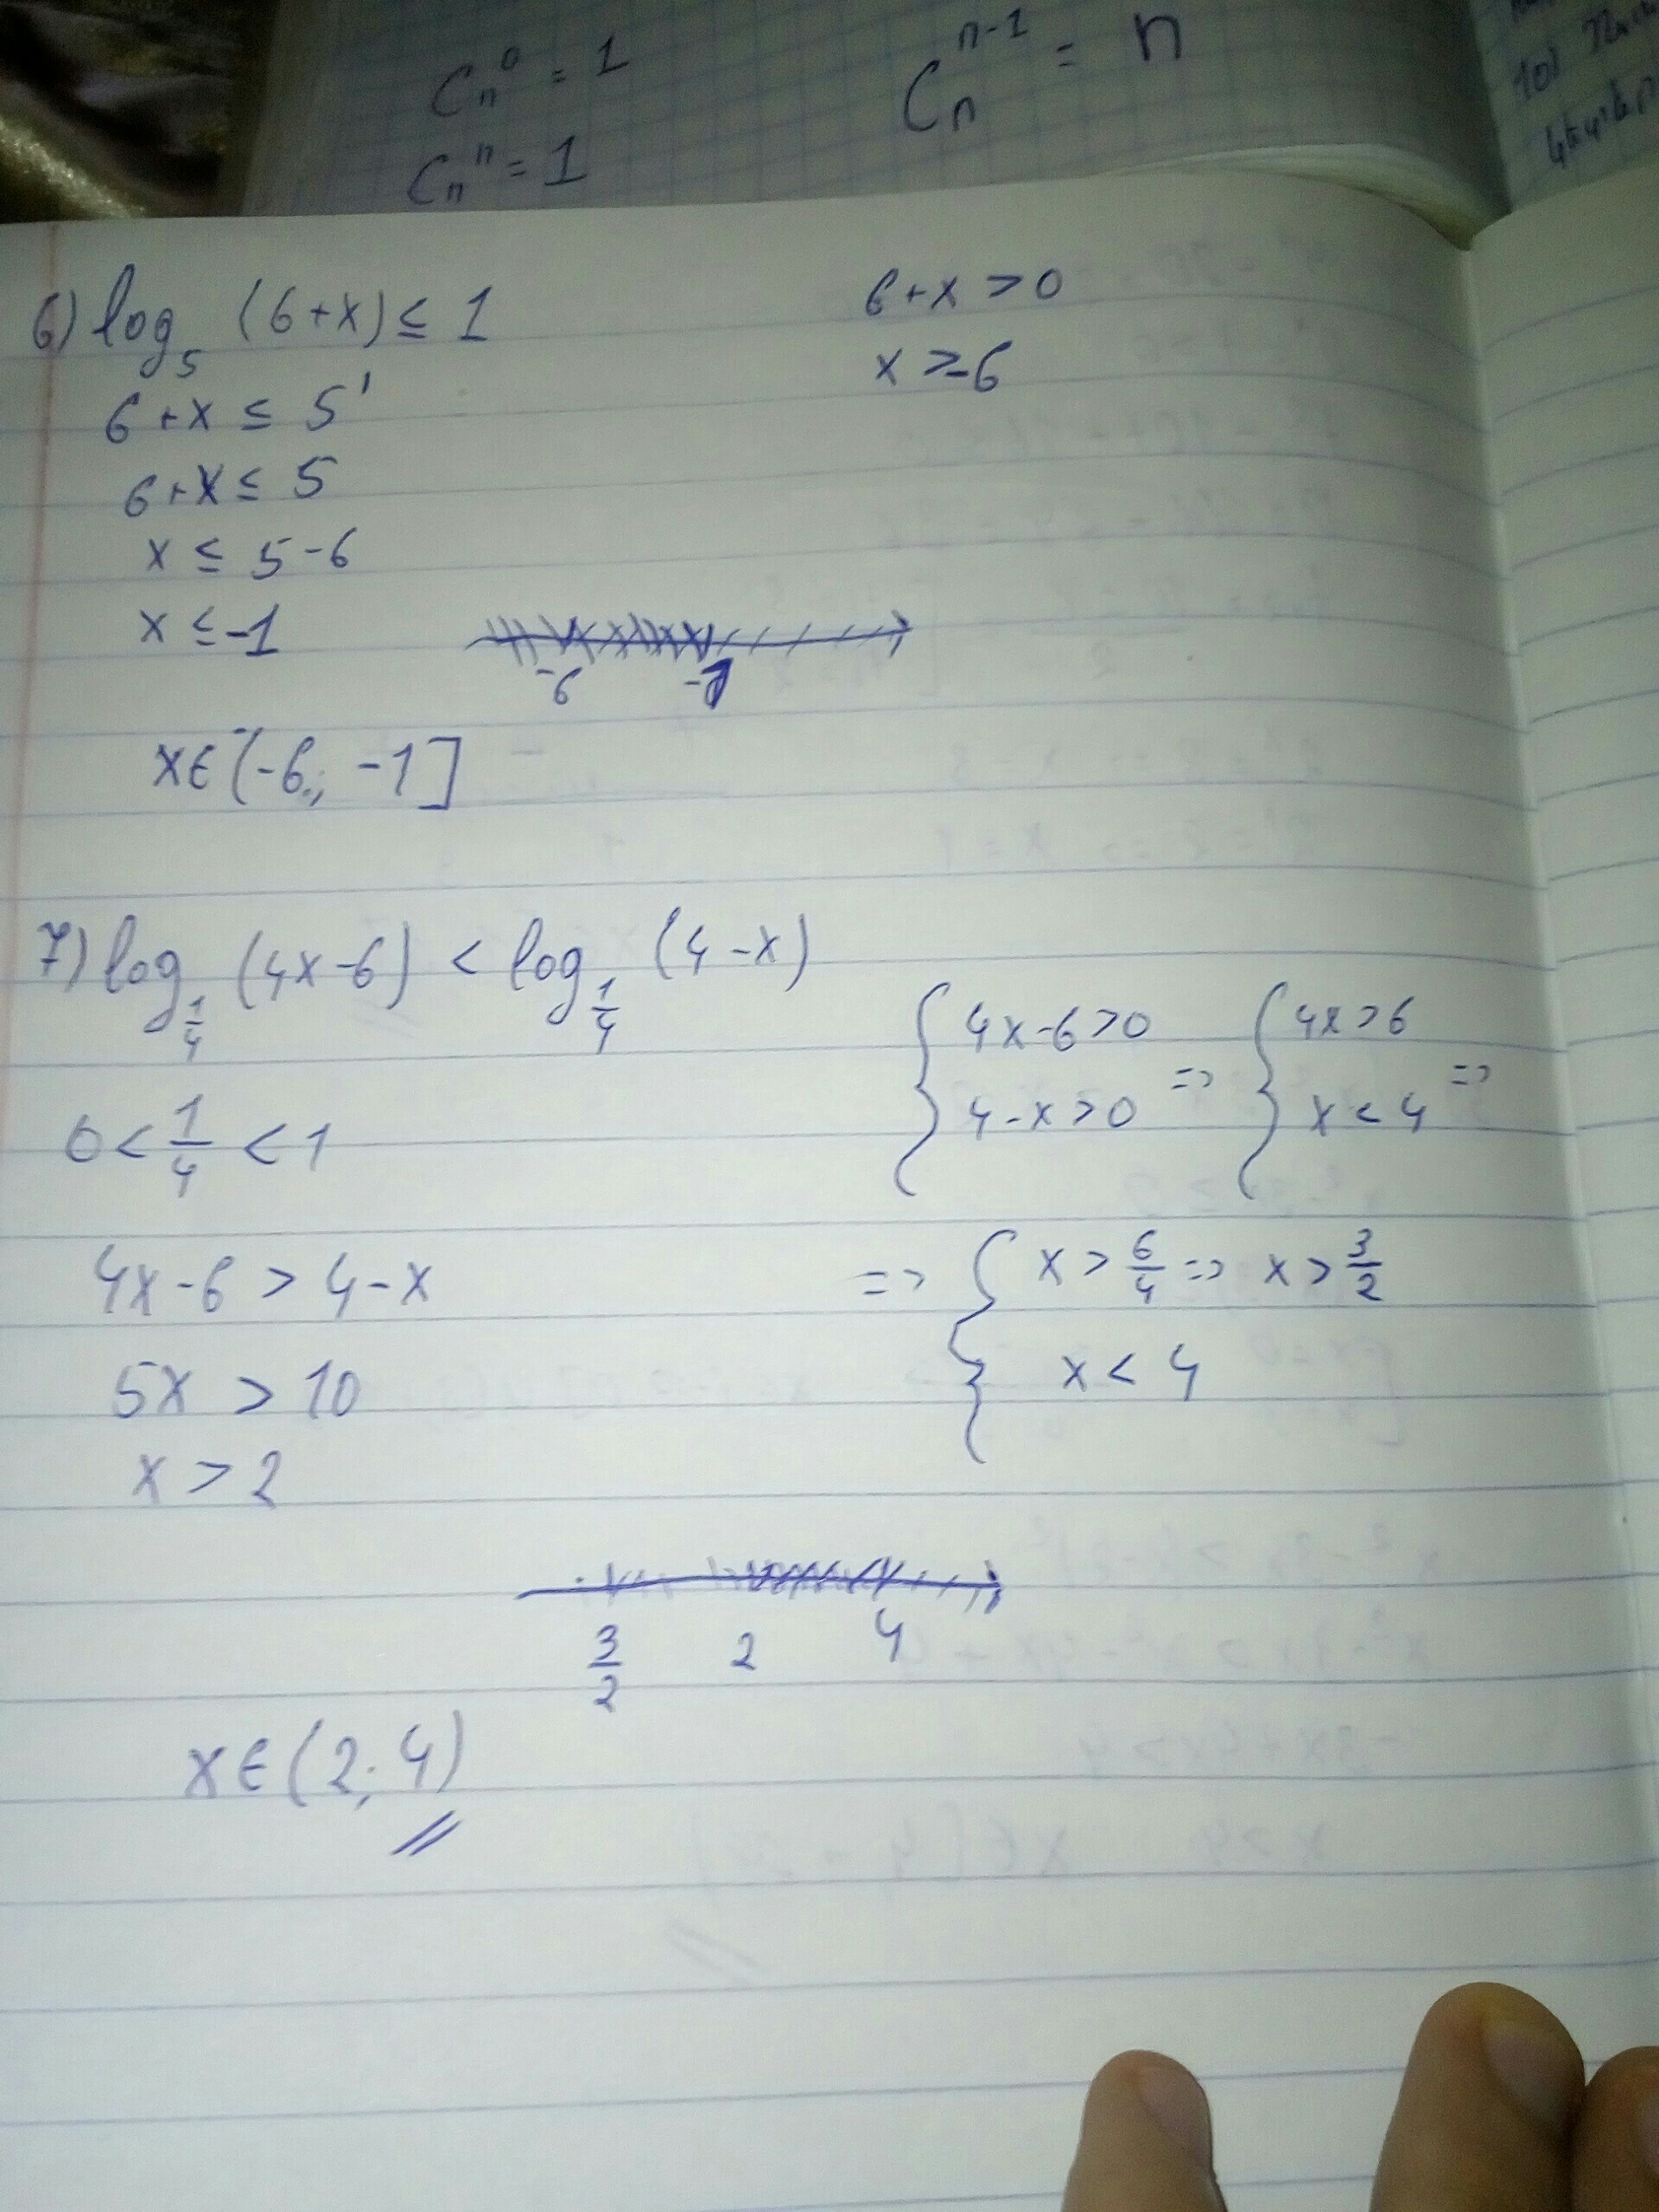 C_n^0 = 1
C_n^{n-1} = n
C_n^n = 1
6) log_5 (6+x) ≤ 1
6+x > 0
x > -6
6+x ≤ 5^1
6+x ≤ 5
x ≤ 5-6
x ≤ -1
-6 -1
x∈(-6; -1]
7) log_{1/4} (4x-6) < log_{1/4} (4-x)
{ 4x-6>0 => { 4x>6 =>
4-x>0 x<4
0 < 1/4 < 1
4x-6 > 4-x
=> { x > 6/4 => x > 3/2
x < 4
5x > 10
x > 2
3/2 2 4
x∈(2; 4)